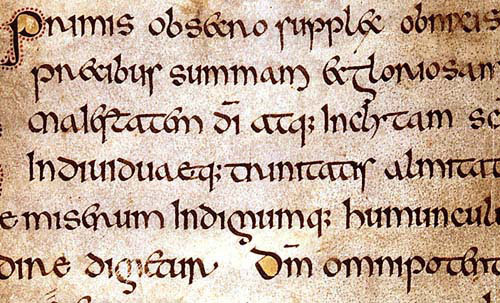 Primis obsecro supplex obnixis
praecibus summam et gloriosam
maiestatem dī atq; Inclitam sc
Indiuiduaeq; trinitatis almitat
e miserum Indignumq; humuncul
dine dignetur Dm̄ omnipotent